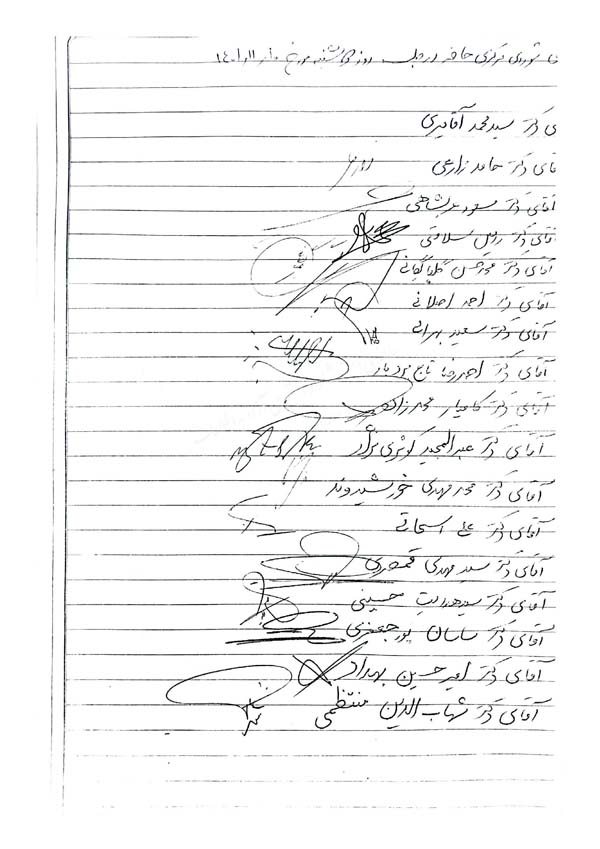 شورای مرکزی حاضر در جلسه روز
ی دکتر سید محمد آقامیری
قای دکتر حامد زارعی
آقای دکتر مسعود
آقای دکتر سلامتی
آقای دکتر محمد حسن گلپایگانی
آقای دکتر احمد اصلانی
آقای دکتر سعید
آقای دکتر احمدرضا تاج
آقای دکتر کامیار
آقای دکتر عبدالمجید کوثری نژاد
آقای دکتر محمد مهدی خورشیدوند
آقای دکتر علی اسحاقی
آقای دکتر سید مهدی قمصری
آقای دکتر سید هدایت حسینی
آقای دکتر ساسان پورجعفری
آقای دکتر امیر حسین بهداد
آقای دکتر شهاب الدین منتظمی